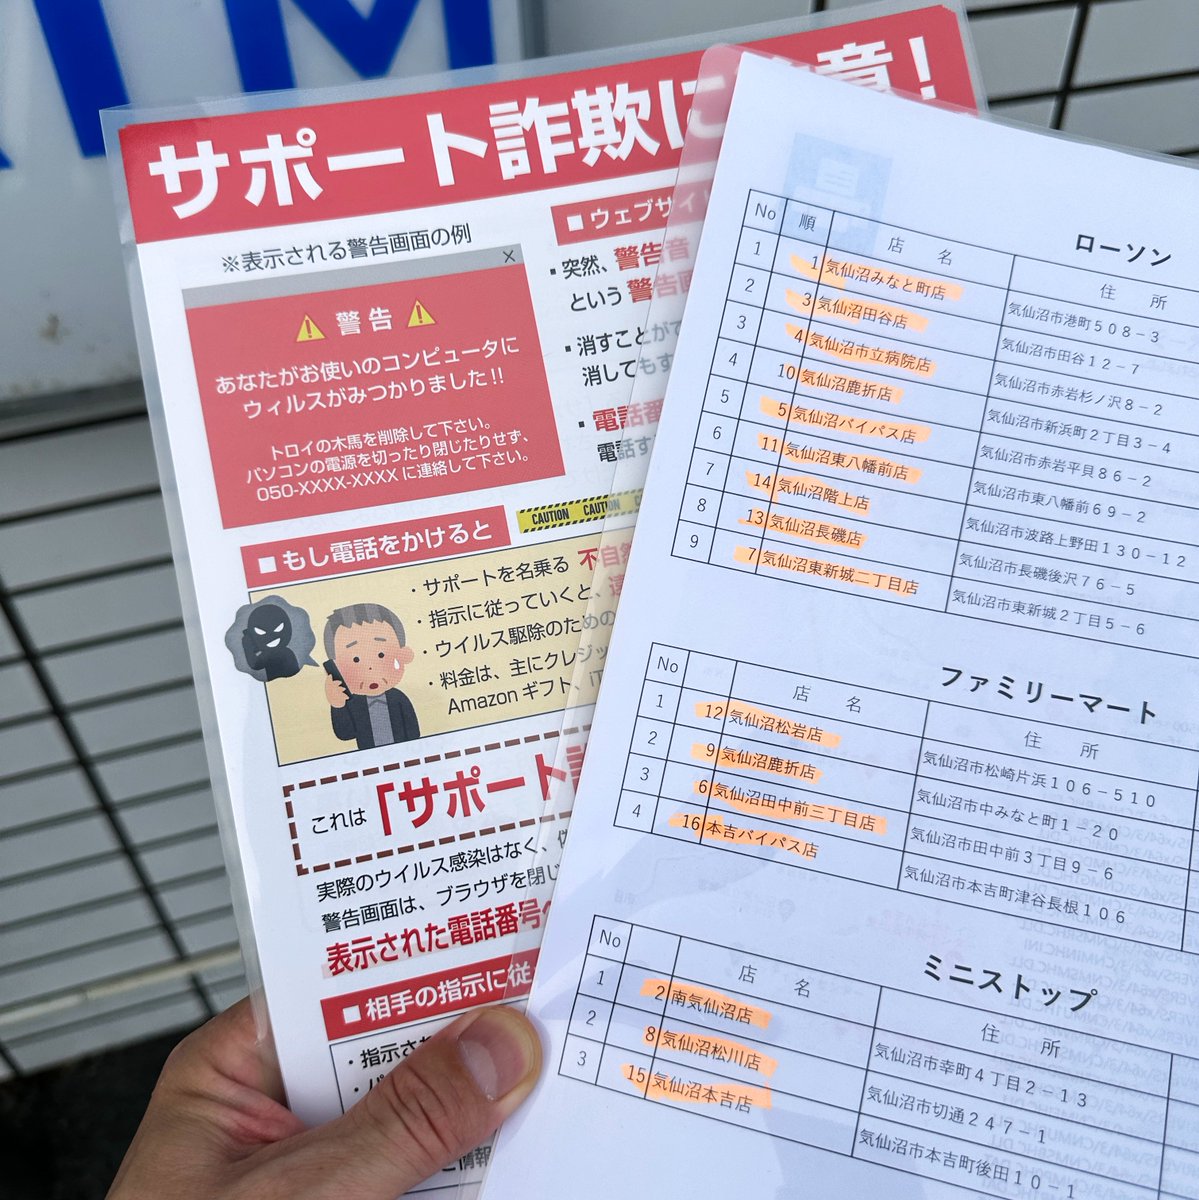 サポート詐欺に注意！
※表示される警告画面の例
×
警告
あなたがお使いのコンピュータに
ウィルスがみつかりました!!
トロイの木馬を削除して下さい。
パソコンの電源を切ったり閉じたりせず、
050-XXXX-XXXX に連絡して下さい。
■ウェブサイ
・突然、警告音
という 警告画
・消すことがで
消してもす
・電話番
電話す
CAUTION CAUTION
■もし電話をかけると
・サポートを名乗る 不自然
・指示に従っていくと、遠
・ウイルス駆除のための
・料金は、主にクレジッ
Amazon ギフト、iT
これは「サポート詐
実際のウイルス感染はなく、
警告画面は、ブラウザを閉じ
表示された電話番号へ
■相手の指示に従
・指示され
ローソン
No 順 店 名 住 所
1 1 気仙沼みなと町店 気仙沼市港町５０８－３
2 3 気仙沼田谷店 気仙沼市田谷１２－７
3 4 気仙沼市立病院店 気仙沼市赤岩杉ノ沢８－２
4 10 気仙沼鹿折店 気仙沼市新浜町２丁目３－４
5 5 気仙沼バイパス店 気仙沼市赤岩平貝８６－２
6 11 気仙沼東八幡前店 気仙沼市東八幡前６９－２
7 14 気仙沼階上店 気仙沼市波路上野田１３０－１２
8 13 気仙沼長磯店 気仙沼市長磯後沢７６－５
9 7 気仙沼東新城二丁目店 気仙沼市東新城２丁目５－６
ファミリーマート
No 店 名 住 所
1 12 気仙沼松岩店 気仙沼市松崎片浜１０６－５１０
2 9 気仙沼鹿折店 気仙沼市中みなと町１－２０
3 6 気仙沼田中前三丁目店 気仙沼市田中前３丁目９－６
4 16 本吉バイパス店 気仙沼市本吉町津谷長根１０６
ミニストップ
No 店 名 住 所
1 2 南気仙沼店 気仙沼市幸町４丁目２－１３
2 8 気仙沼松川店 気仙沼市切通２４７－１
3 15 気仙沼本吉店 気仙沼市本吉町後田１０－１